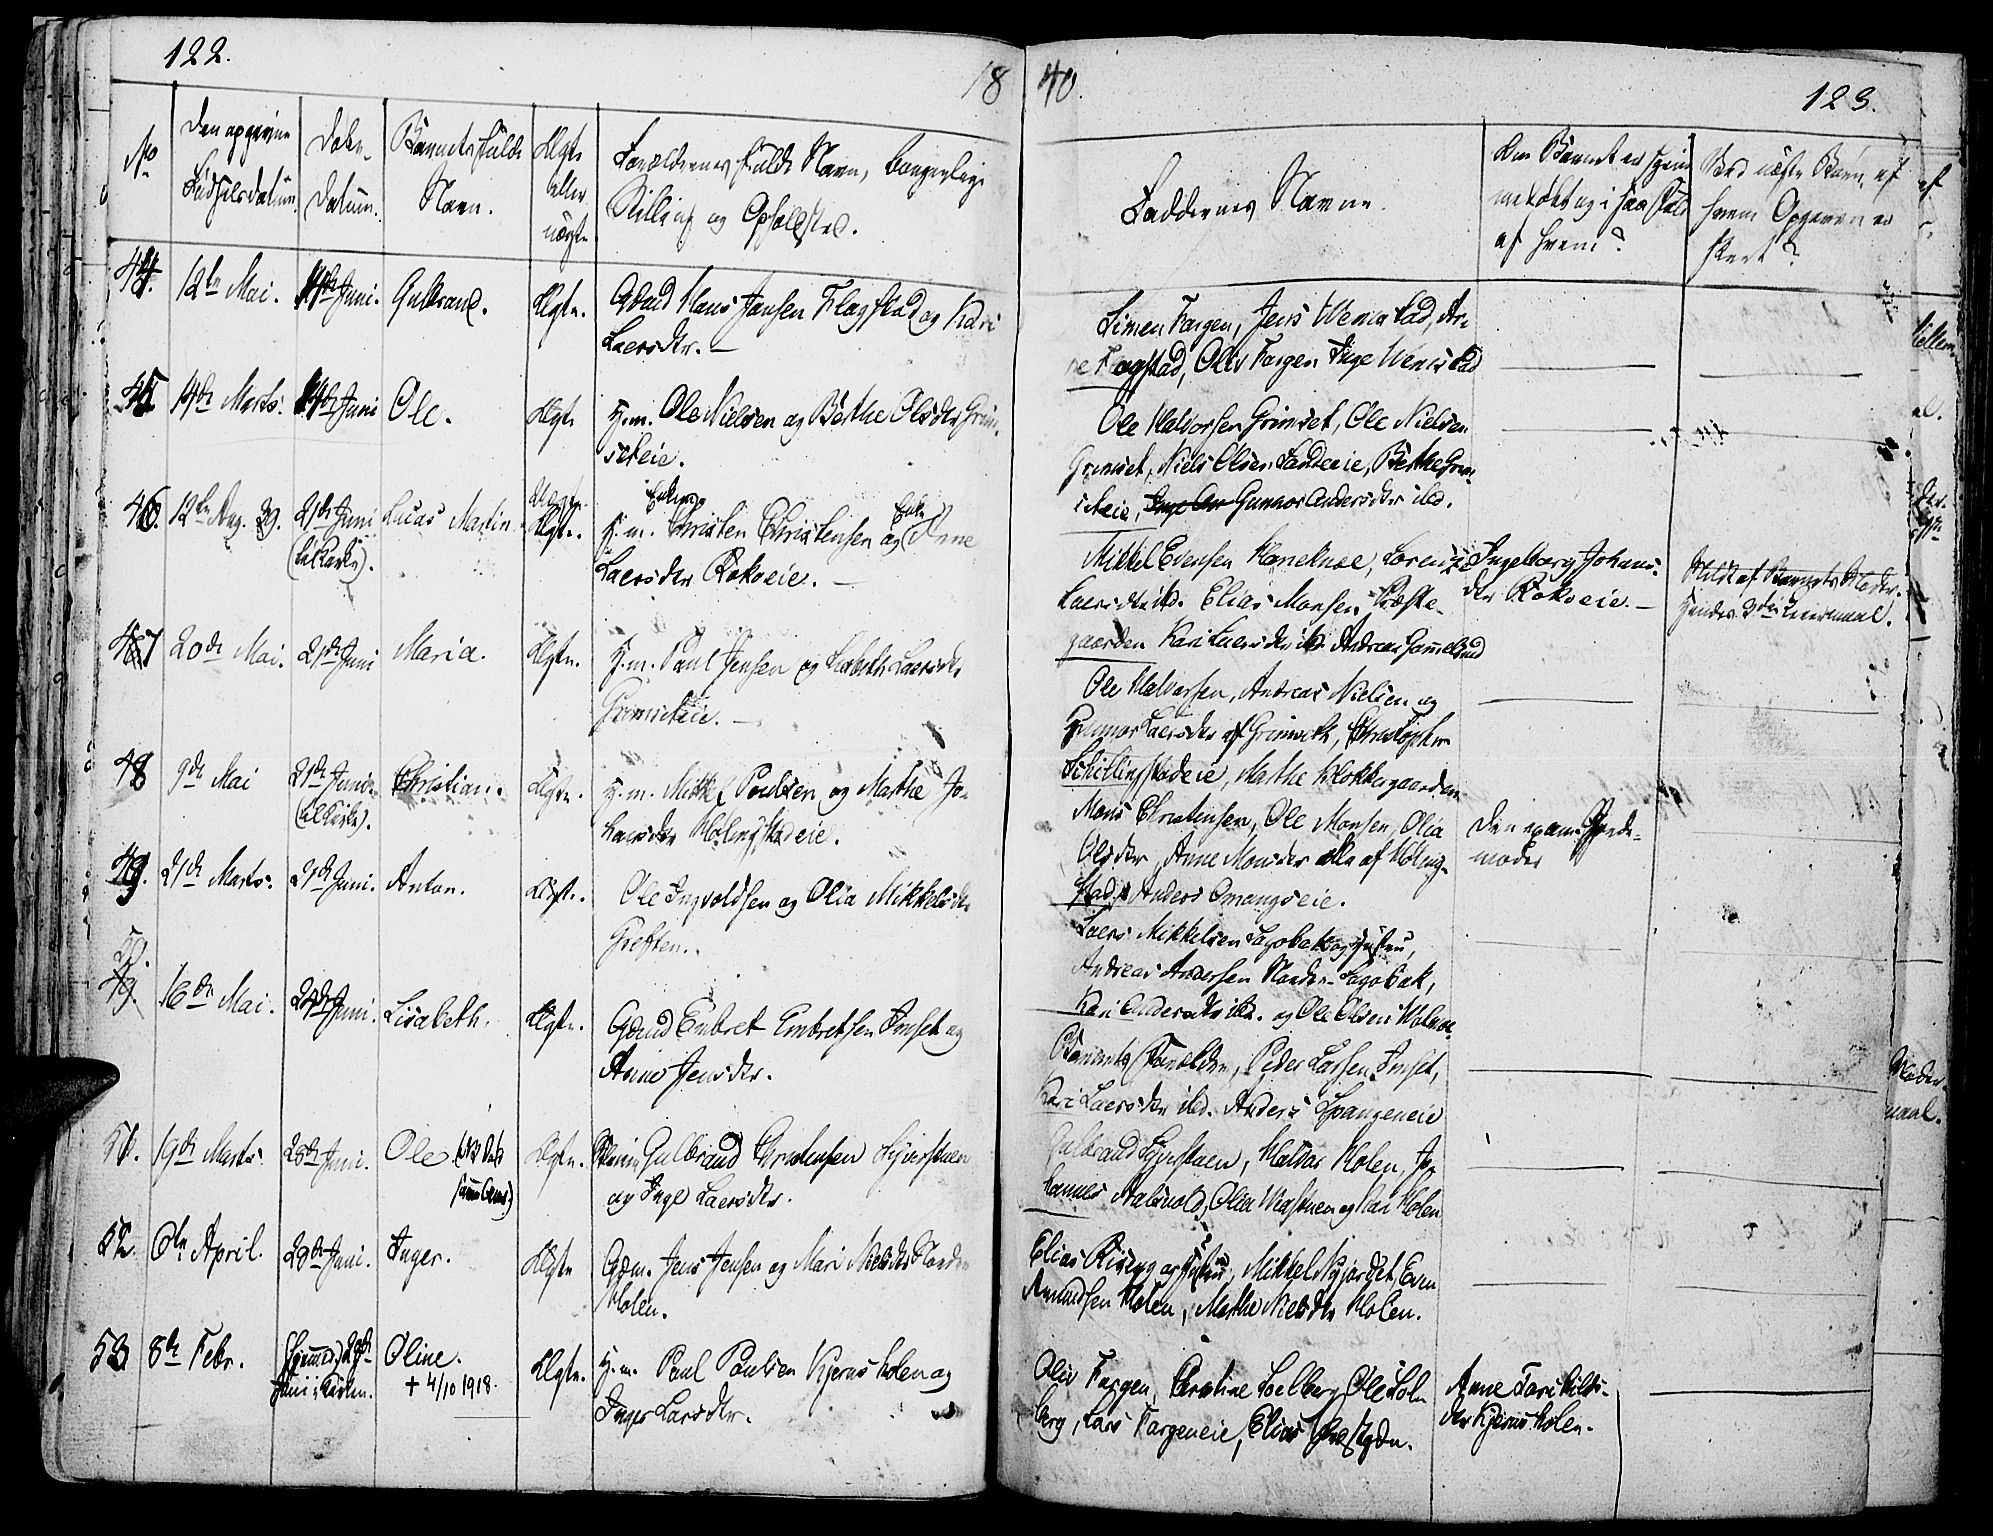 122.
18
No
Den opgivne
Fødselsdatum.
Døbe-
datum.
Barnets fulde
Navn.
Ægte
eller
uægte
Forældrenes fulde Navn, borgerlige
Stilling og Opholdsted.
44.
12te Mai.
14de Juni.
Gulbrand.
Ægte.
Gdmd Hans Jansen Flagstad og Kari
Laersdtr. —
45
14de Marts.
14de Juni
Ole.
Ægte
H.m. Ole Nielsen og Berthe Olsdtr Grim-
seteie.
46.
12te Aug. 39.
21de Juni
(til Kirke).
Lucas Martin.
Uægte
Ægte.
Enkem.
Enke
H.m. Christen Christensen og Anne
Laersdtr Rokoeie. —
47
20de Mai.
21de Juni
Maria.
Ægte.
H.m. Paul Jensen og Lisbeth Laersdtr
Grimseteie. —
48
9de Mai
21de Juni.
(til Kirke).
Christian.
Ægte.
H.m. Mikkel Poulsen og Marthe Jo-
hansdtr Holingstadeie.
49.
21de Marts.
21de Juni.
Anton.
Ægte.
Ole Ingvoldsen og Olia Mikkelsdtr
Greften.
50.
49.
16de Mai.
24de Juni.
Lisabeth.
Ægte.
Gdmd Embret Embretsen Imset og
Anne Jensdtr.
51.
19de Marts.
28de Juni.
Ole
Ægte.
Gulbrand Christensen
og Inge Laersdtr.
52.
6te April.
28de Juni.
Inger.
Ægte
Gdm. Jens Jensen og Mari Nielsdtr Nordre
Holen.
53
8de Febr.
(hjemmed.) 28de
Juni i Kirken.
Oline.
+ 4/10 1918.
Ægte.
H.m. Paul Paulsen Kjernsholen og
Inger Larsdtr.
40.
123.
Faddernes Navne.
Om Barnet er hjem-
medøbt og i saa Fald
af hvem?
Ved uægte Børn, af
hvem Opgaven er
skeet?
Simen Fargen, Jens Wenerstad, Ar-
ne Flagstad, Oliv Fargen Inge Wenerstad
Ole Halvorsen Grimset, Ole Nielsen
Grimset, Niels Olsen Sandeeie, Berthe Grim-
seteie, Gunnor Andersdtr ibd.
Mikkel Evensen Haneknæ, Lorents
Laersdtr ibd. Elias Monsen Præste-
gaarden Kari Laersdtr ibd Andreas Gammelsrud
Ingeborg Johans-
dtr Rokoeie. —
Meldt af Barnets Moder.
Hendes 3die Leiermaal.
Ole Halvorsen, Andreas Nielsen og
Gunnor Laersdtr af Grimseth, Christopher
Schillingstadeie, Marthe Klokkergaarden
Mons Christensen, Ole Monsen, Olia
Olsdtr, Anne Monsdtr alle af Holing-
stad, Anders Omangseie.
Den exam. Jorde-
moder
Laers Mikkelsen Sagobak og Hustru,
Andreas Andersen Nordre-Sagobak,
Kari Andersdtr ibd. og Ole Olsen Holmoe.
Barnets Forældre, Peder Larsen Imset,
Kari Laersdtr ibd. Anders Spangeneie
Gulbrand, Halvor Holen, Jo-
hannes, Olia og Kari Holen
Elias Riseng og Hustru, Mikkel Nyjordet, Even
Amundsen Holen, Marthe Nielsdtr Holen.
Oliv Fargen, Christine Solberg, Ole Sol-
berg, Lars Fargeneie, Elias Præstgdn.
Anne Torkildts-
dtr Kjernsholen.